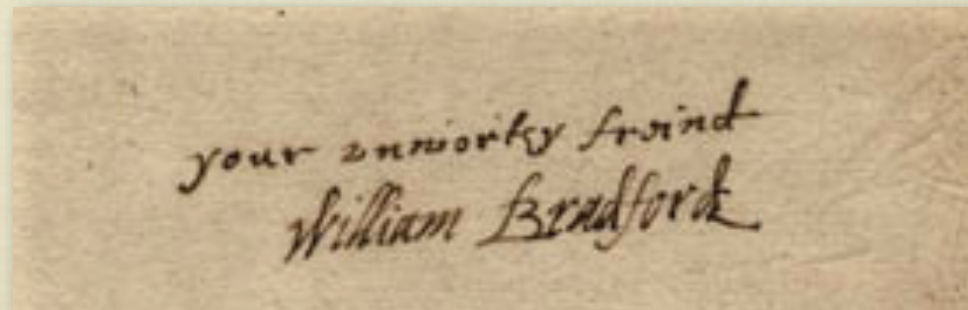 your vnworthy freind
William Bradford